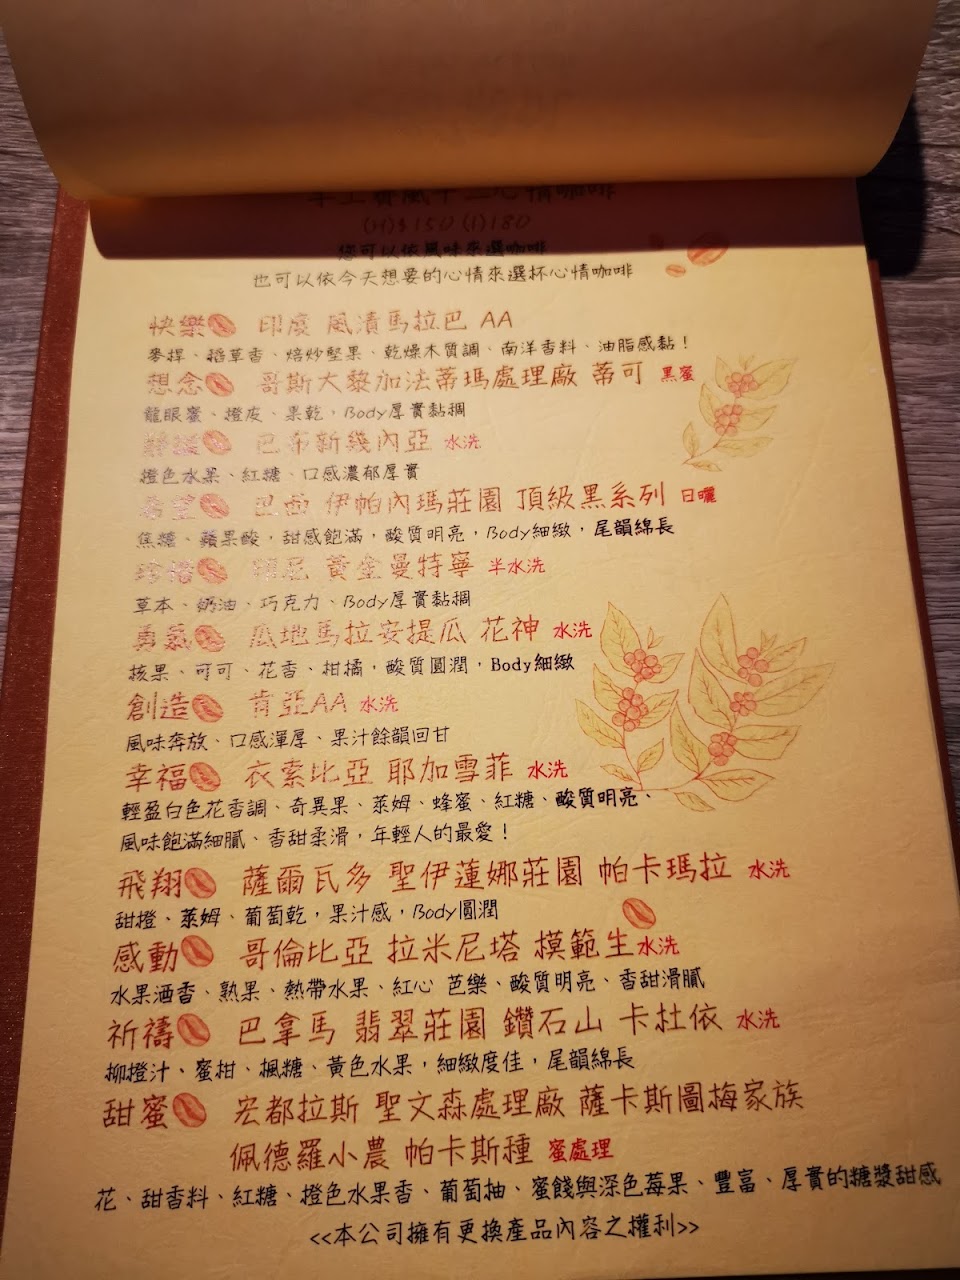 手工賽風十二心情咖啡
(H)$150 (I)180
您可以依風味來選咖啡
也可以依今天想要的心情來選杯心情咖啡
快樂 印度 風漬馬拉巴 AA
麥桿、稻草香、焙炒堅果、乾燥木質調、南洋香料、油脂感黏！
想念 哥斯大黎加法蒂瑪處理廠 蒂可 黑蜜
龍眼蜜、橙皮、果乾，Body厚實黏稠
巴布新幾內亞 水洗
橙色水果、紅糖、口感濃郁厚實
希望 巴西 伊帕內瑪莊園 頂級黑系列 日曬
焦糖、蘋果酸，甜感飽滿，酸質明亮，Body細緻，尾韻綿長
珍惜 印尼 黃金曼特寧 半水洗
草本、奶油、巧克力、Body厚實黏稠
勇氣 瓜地馬拉安提瓜 花神 水洗
核果、可可、花香、柑橘，酸質圓潤，Body細緻
創造 肯亞AA 水洗
風味奔放、口感渾厚、果汁餘韻回甘
幸福 衣索比亞 耶加雪菲 水洗
輕盈白色花香調、奇異果、萊姆、蜂蜜、紅糖、酸質明亮、
風味飽滿細膩、香甜柔滑，年輕人的最愛！
飛翔 薩爾瓦多 聖伊蓮娜莊園 帕卡瑪拉 水洗
甜橙、萊姆、葡萄乾，果汁感，Body圓潤
感動 哥倫比亞 拉米尼塔 模範生水洗
水果酒香、熟果、熱帶水果、紅心 芭樂、酸質明亮、香甜滑膩
祈禱 巴拿馬 翡翠莊園 鑽石山 卡杜依 水洗
柳橙汁、蜜柑、楓糖、黃色水果，細緻度佳，尾韻綿長
甜蜜 宏都拉斯 聖文森處理廠 薩卡斯圖梅家族
佩德羅小農 帕卡斯種 蜜處理
花、甜香料、紅糖、橙色水果香、葡萄柚、蜜餞與深色莓果、豐富、厚實的糖漿甜感
<<本公司擁有更換產品內容之權利>>